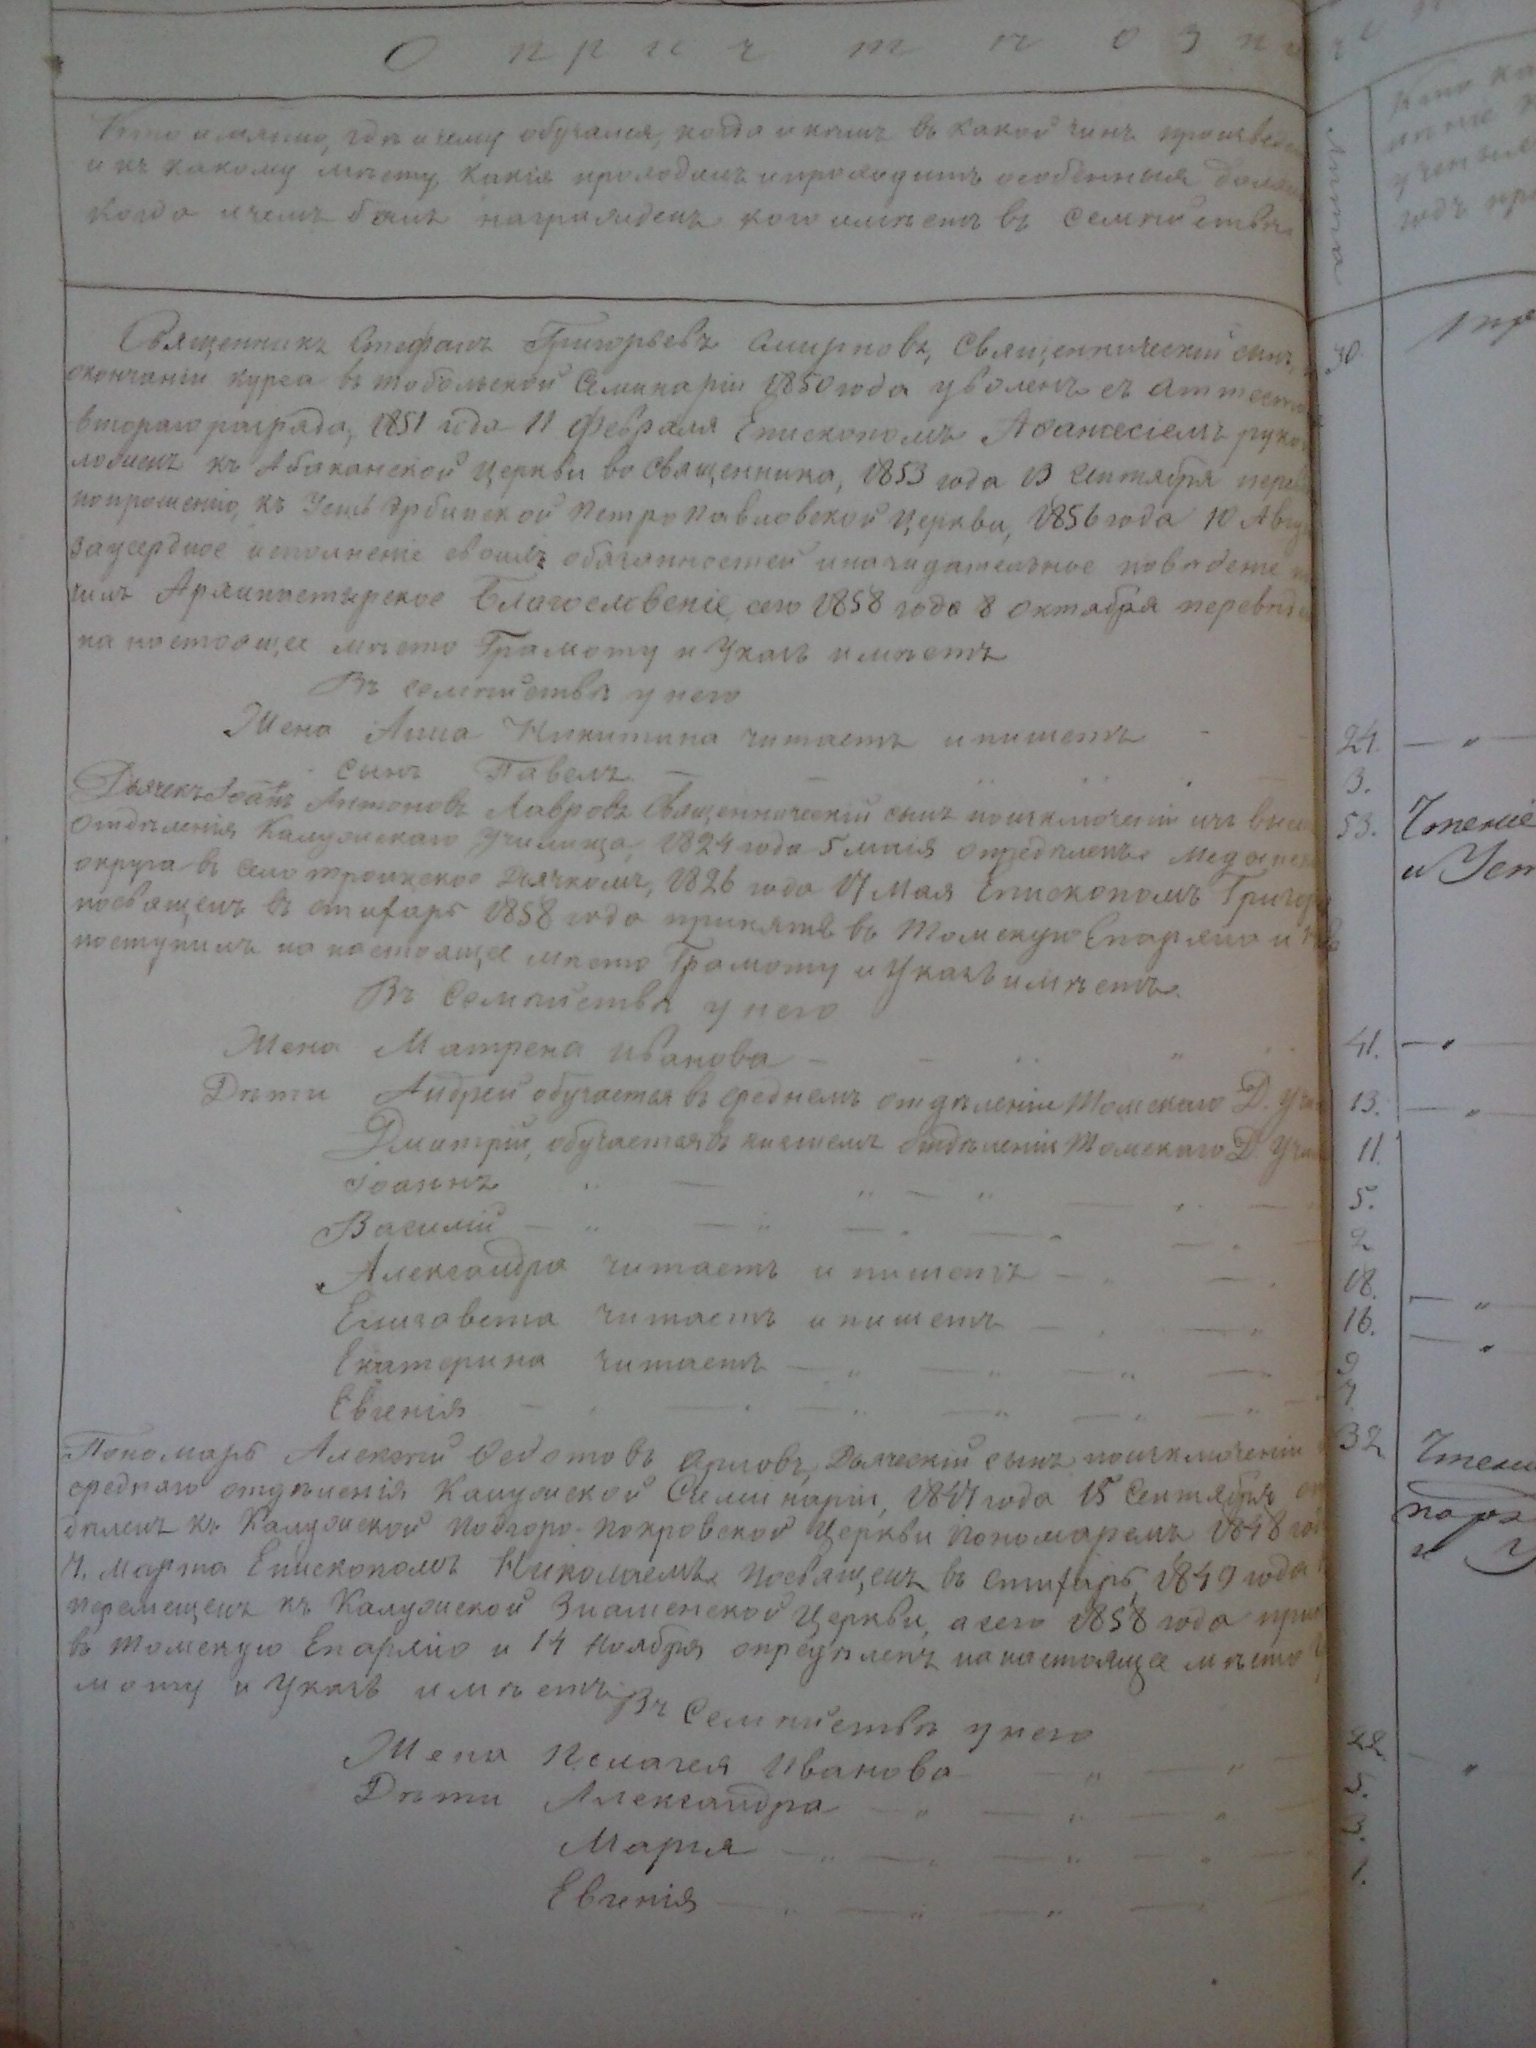 О причт
Кто имянно, где и чему обучался, когда и кемъ въ какой чинъ произведенъ
и къ какому мѣсту, какія проходилъ и проходитъ особенныя должн
когда и чемъ былъ награжденъ кого имѣетъ въ семѣйствѣ
Священникъ Стефанъ Григорьевъ Смирновъ, Священническій сынъ,
30.
окончаніи курса въ тобольской Семинаріи 1850 года уволенъ съ аттеста
втораго разряда, 1851 года 11 Февраля Епископомъ Аѳанасіемъ руко
ложенъ къ Абаканской Церкви во Священника, 1853 года 13 Сентября пере
по прошенію, къ Усть Ербинской Петро Павловской Церкви, 1856 года 10 Авгу
за усердное исполненіе своихъ обязанностей и назидательное поведеніе
чилъ Архипастырское Благословеніе, сего 1858 года 8 Октября переведе
на настоящее мѣсто Грамоту и Указъ имѣетъ
Въ семѣйствѣ у него
Жена Анна Никитина читаетъ и пишетъ
24.
сынъ Павелъ
3.
Дьячекъ Іоаннъ Антоновъ Лавровъ Священническій сынъ по исключеніи изъ высш
53. Чтеніе
отдѣленія Калужскаго Училища, 1824 года 5 маія опредѣленъ Медынска
и Уст
округа въ село троицкое дьячкомъ, 1826 года 17 Мая Епископомъ Григор
посвященъ въ стихарь 1858 года принятъ въ Томскую Епархію и
поступилъ на настоящее мѣсто Грамоту и Указъ имѣетъ.
Въ Семѣйствѣ у него
Жена Матрена Иванова
41.
Дѣти Андрей обучается въ среднемъ отдѣленіи Томскаго Д. Учи
13.
Дмитрій, обучается въ низшемъ отдѣленіи Томскаго Д. Учи
11.
Іоаннъ
5.
Василій
2
Александра читаетъ и пишетъ
18.
Елизавета читаетъ и пишетъ
16.
Екатерина читаетъ
9
Евгенія
7.
Пономарь Алексѣй Ѳедотовъ Орловъ, Дьяческій сынъ по исключеніи
32
среднаго отдѣленія Калужской Семинаріи, 1847 года 15 Сентября оп
дѣленъ къ Калужской Подгоро-Покровской Церкви пономаремъ 1848 год
4. Марта Епископомъ Николаемъ Посвященъ въ стихарь, 1849 года
перемещенъ къ Калужской Знаменской Церкви, а сего 1858 года прин
въ Томскую Епархію и 14 Ноября опредѣленъ на настоящее мѣсто
моту и Указъ имѣетъ. Въ Семѣйствѣ у него
Жена Пелагея Иванова
22.
Дѣти Александра
5.
Марія
3.
Евгенія
1.